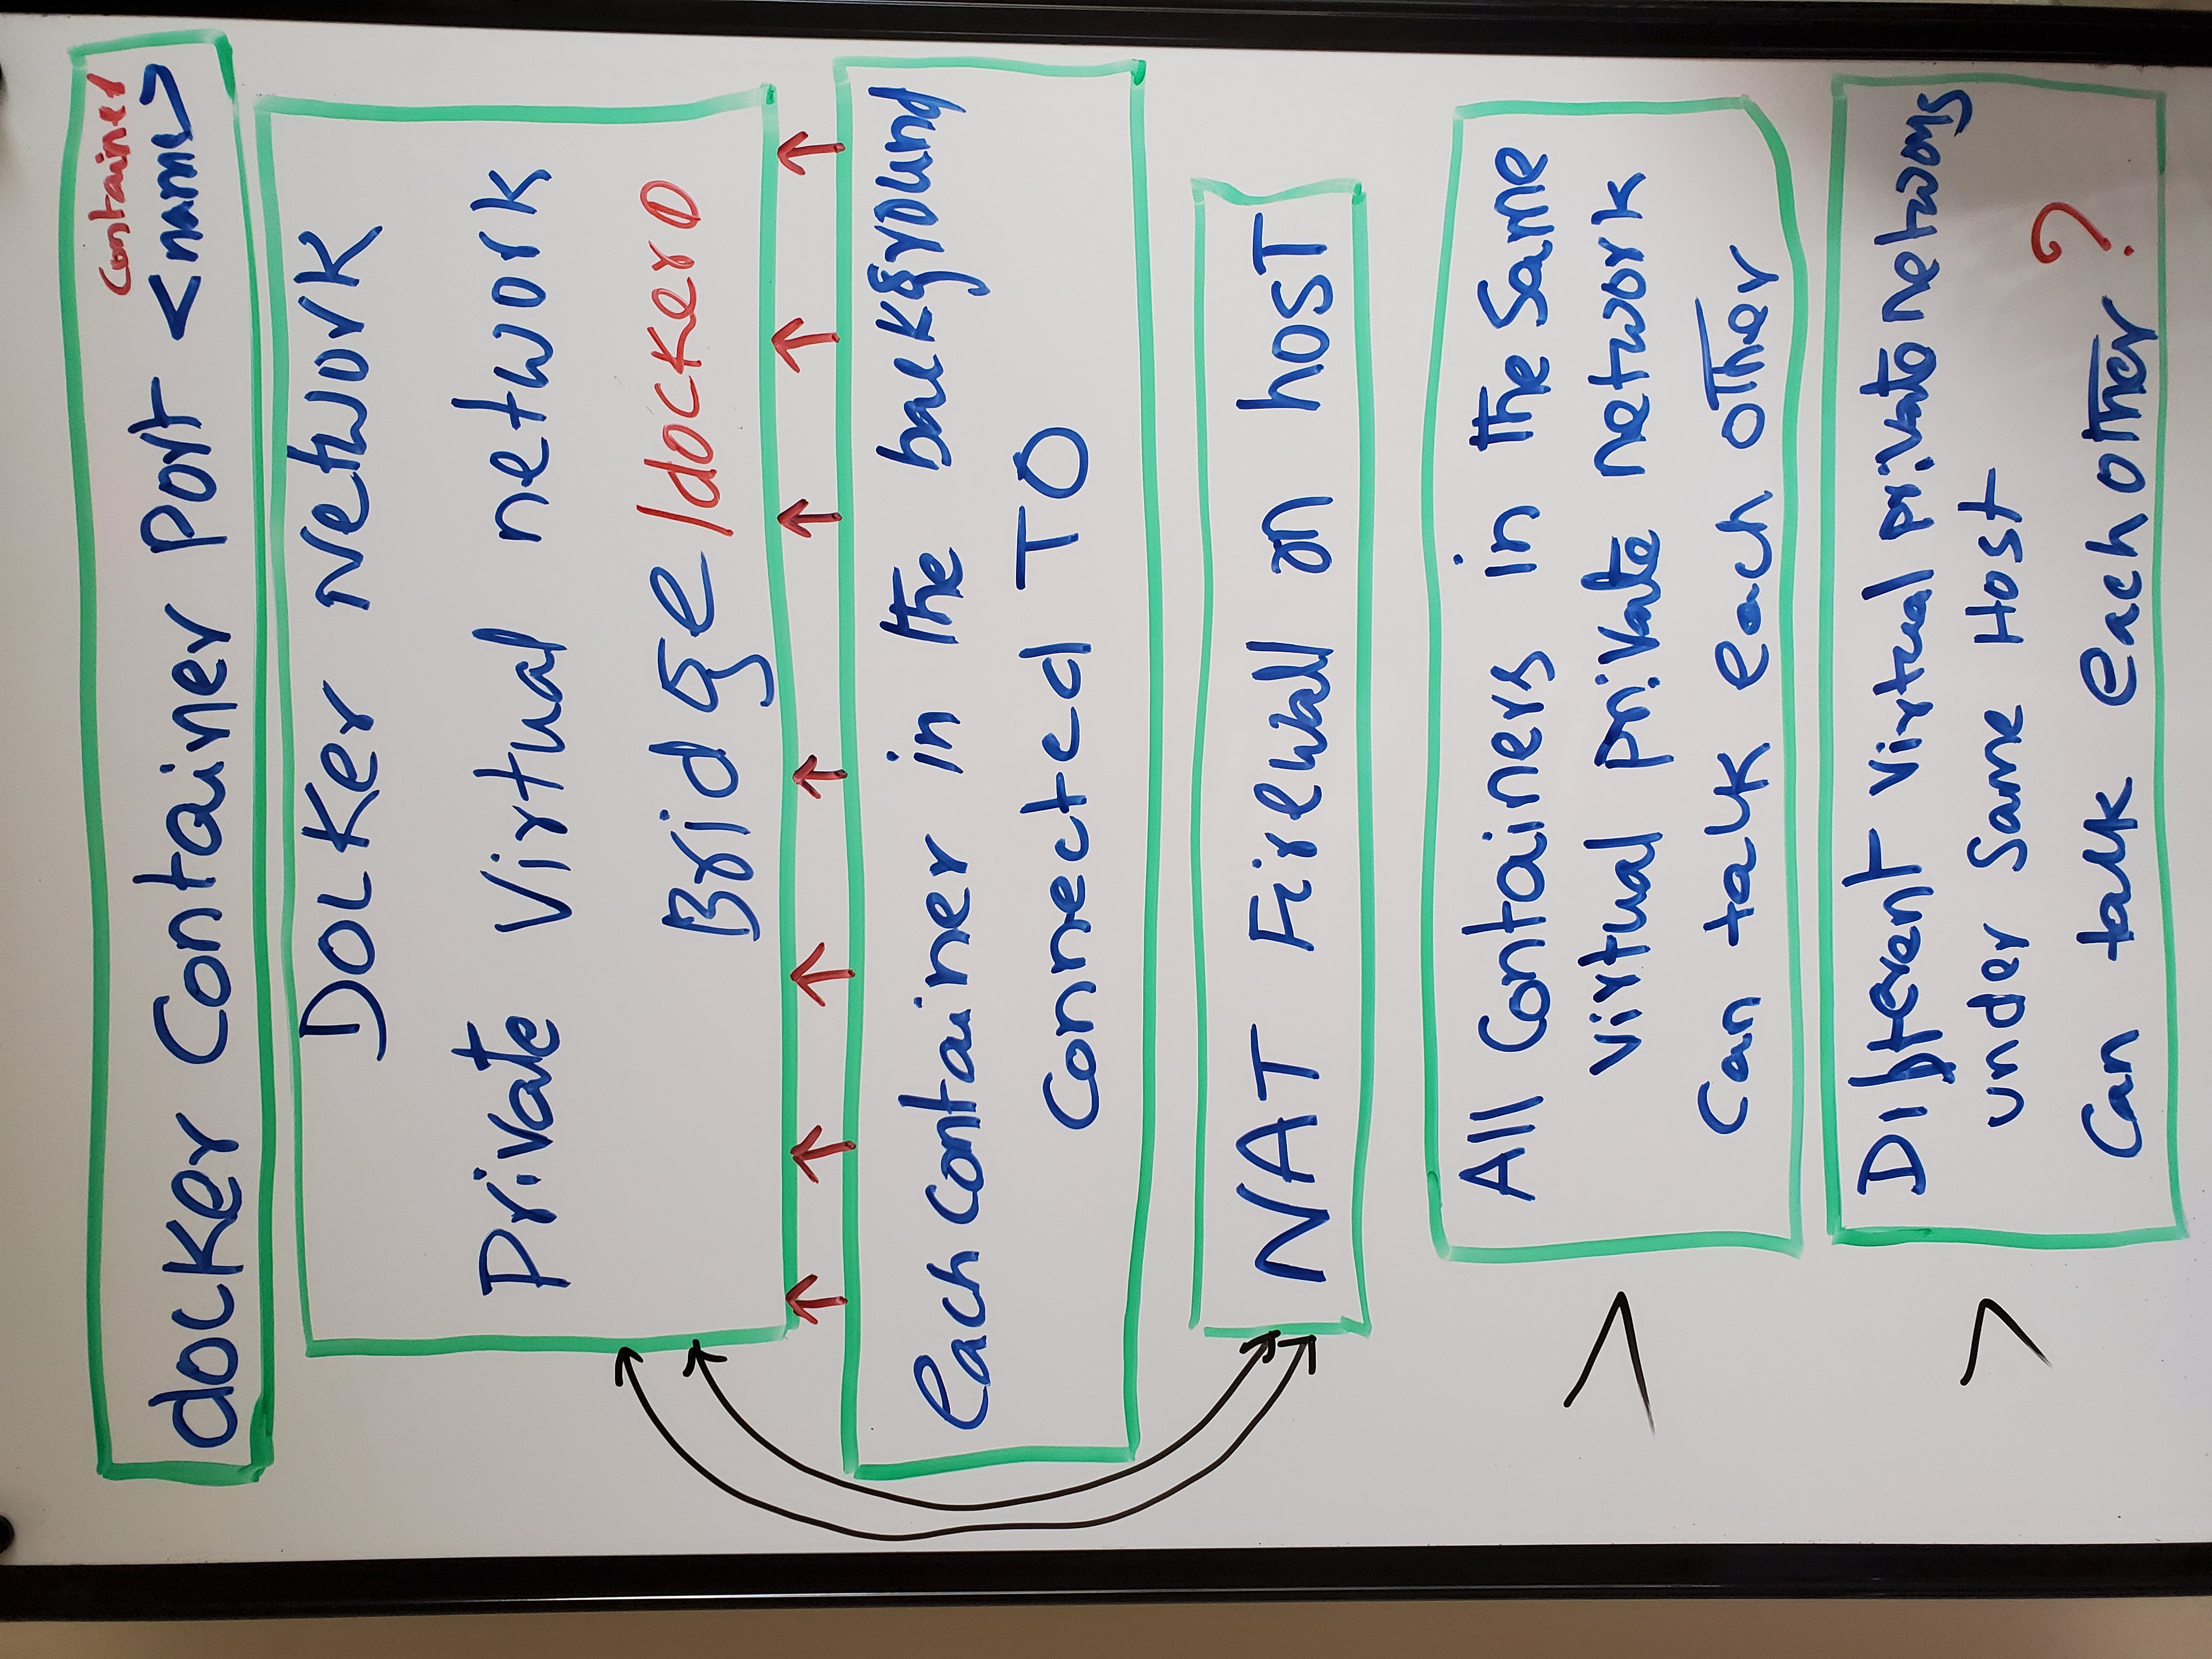 Container
docker Container Port <name>
Docker Network
Private Virtual network
Bridge/docker0
Each container in the background
Connected TO
NAT Firewall on host
All Containers in the Same
virtual private network
Can talk each other
Different virtual private
under Same Host
Can talk each other ?